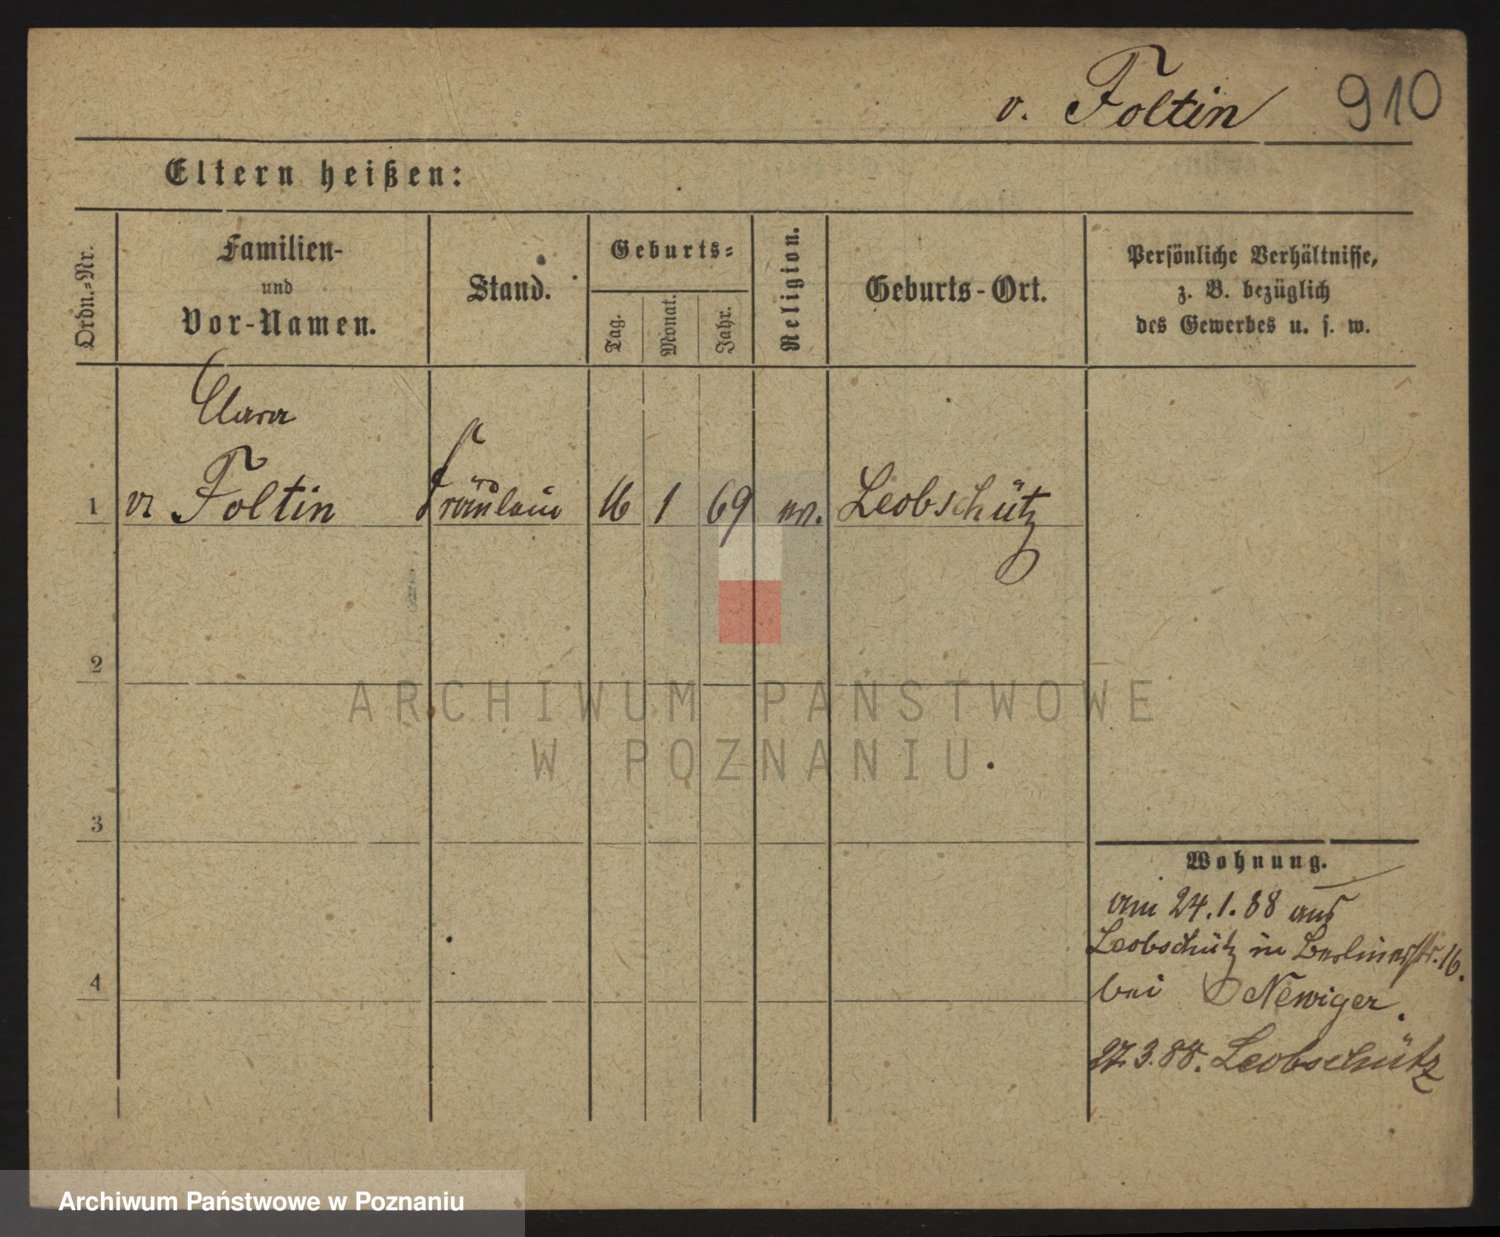 v. Foltin 910
Eltern heißen:
Ordn.-Nr.
Familien-
und
Vor-Namen.
Stand.
Geburts-
Tag.
Monat.
Jahr.
Religion.
Geburts-Ort.
Persönliche Verhältnisse,
z. B. bezüglich
des Gewerbes u. s. w.
Clara
1 v Foltin Fräulein 16 1 69 ev. Leobschütz
2
3
4
Wohnung.
am 24.1.88 aus
Leobschütz in Berlinerstr. 16.
bei Newiger.
27.3.88. Leobschütz
ARCHIWUM PAŃSTWOWE
W POZNANIU
Archiwum Państwowe w Poznaniu